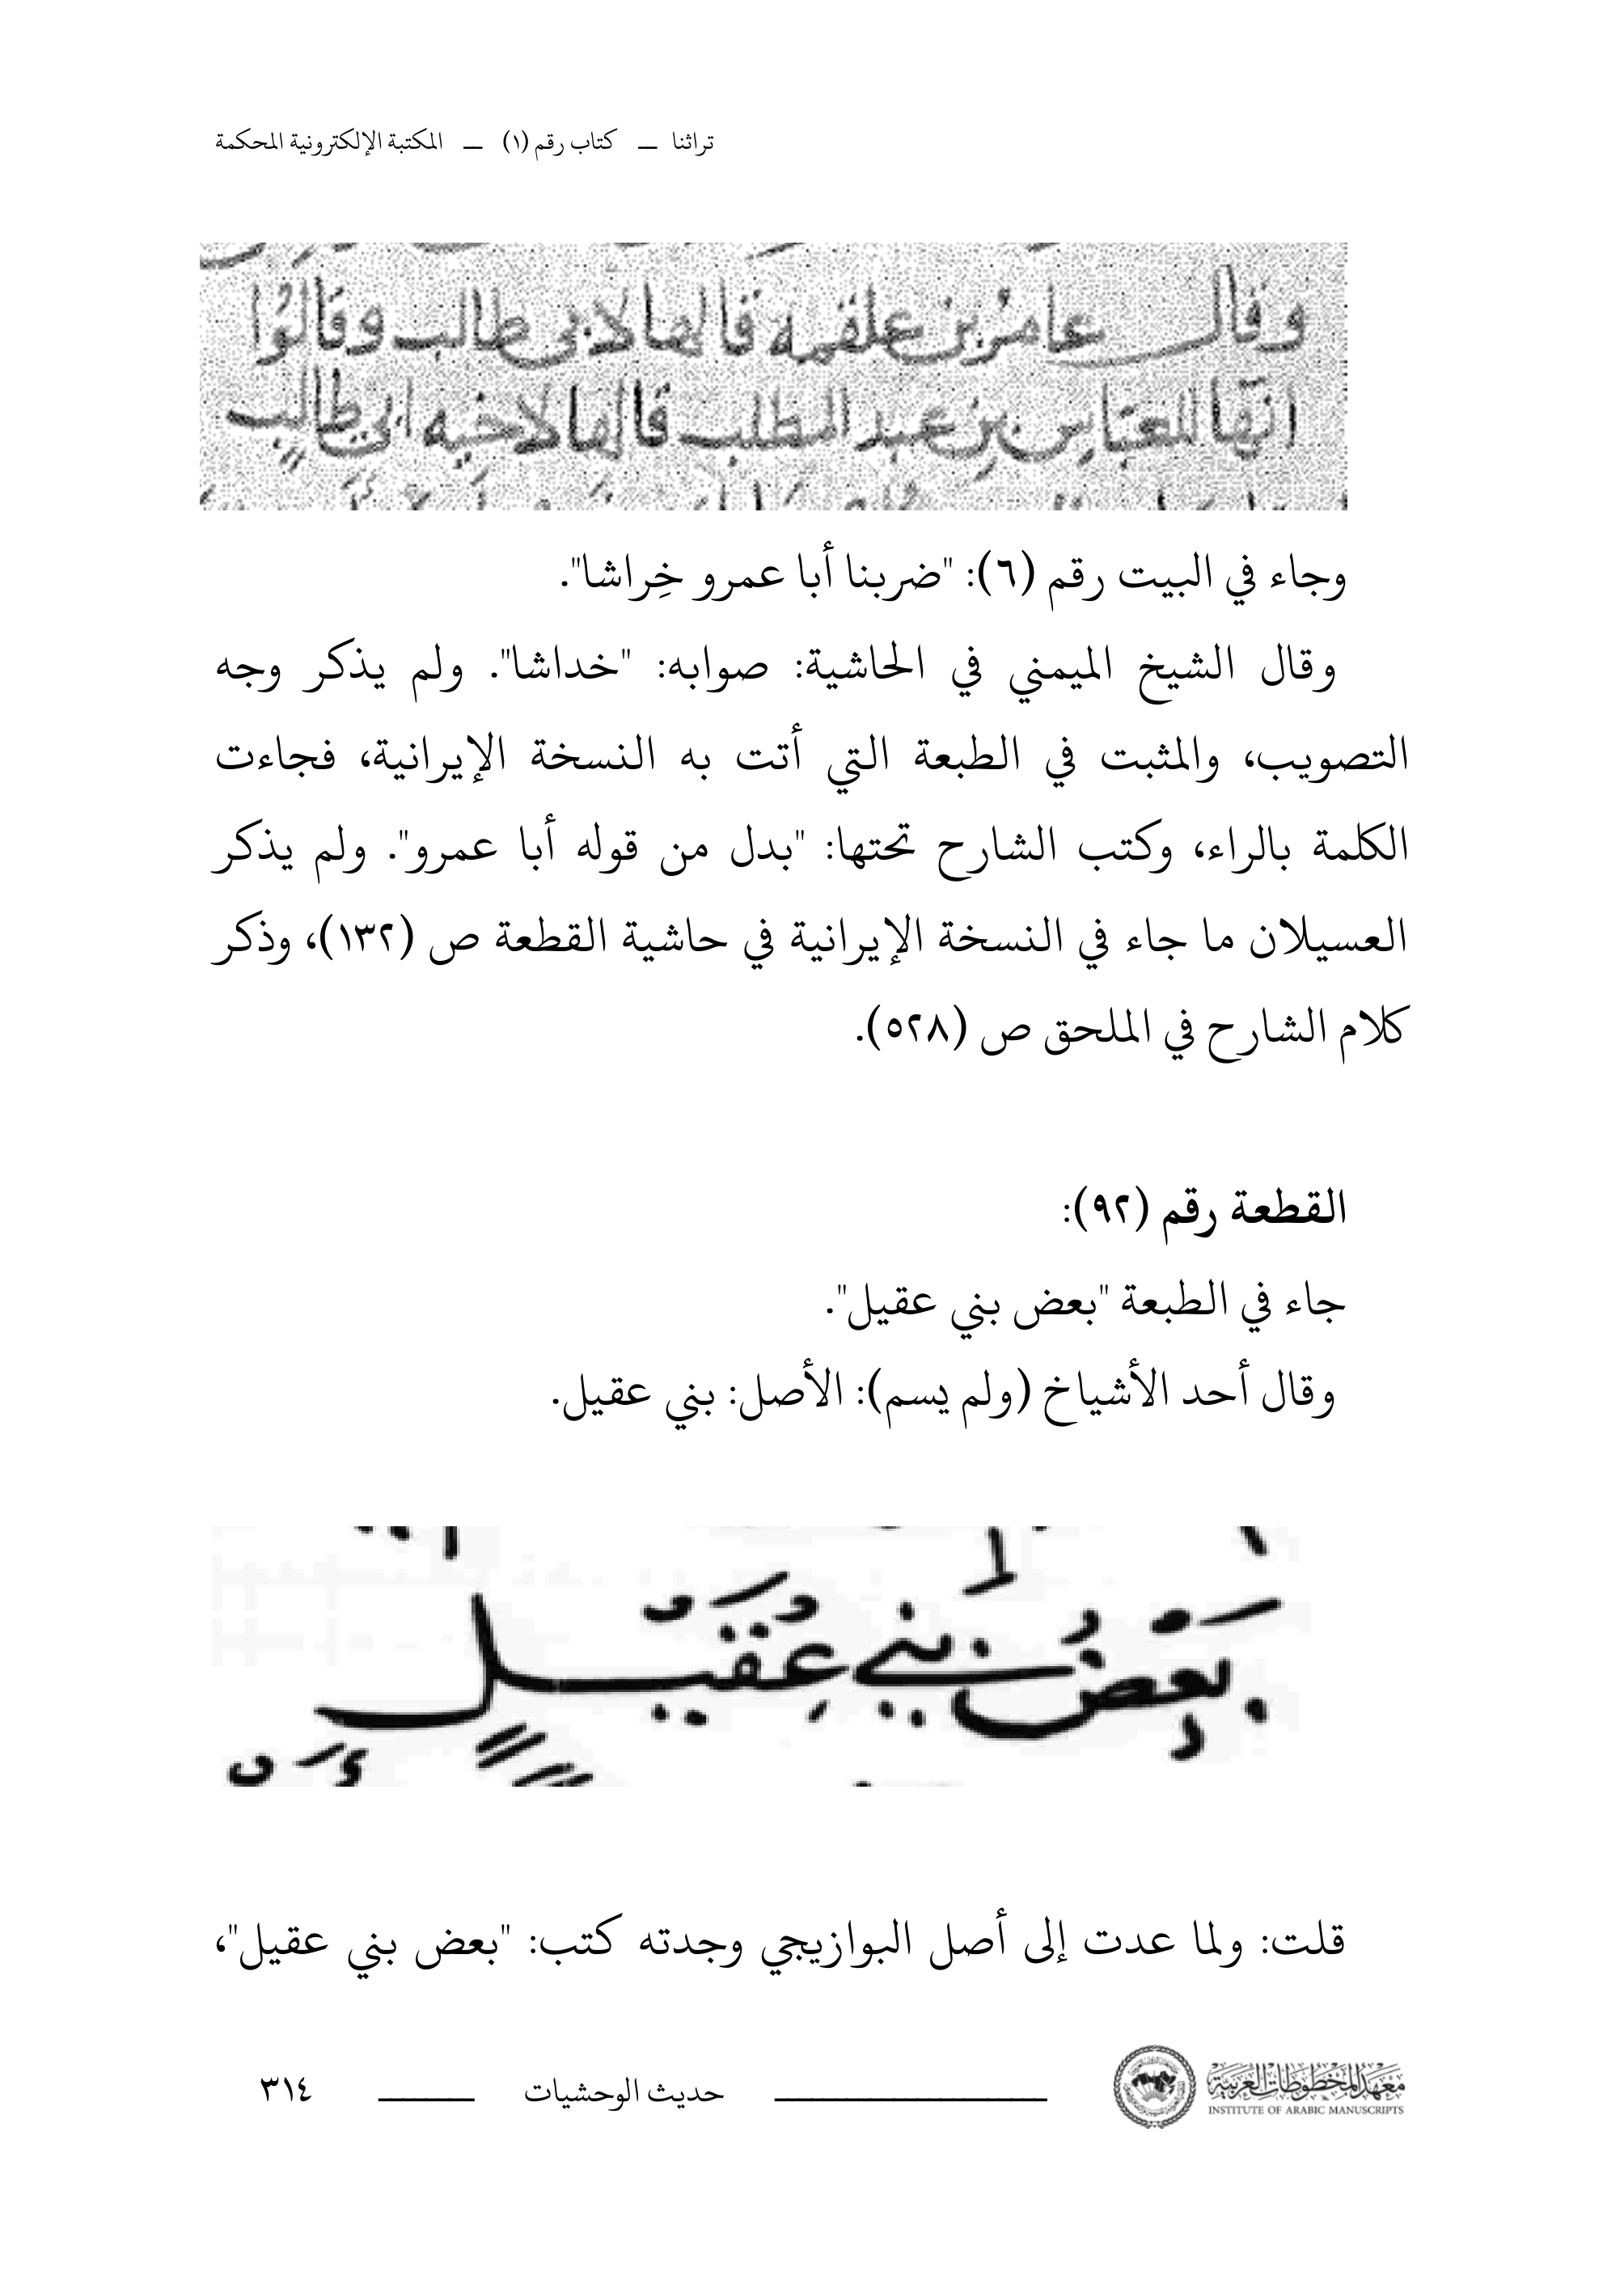 تراثنا — كتاب رقم (١) — المكتبة الإلكترونية المحكمة
وقال عامر بن علقمة قالها لابي طالب وقالوا
انها للعباس بن عبد المطلب قالها لاخيه ابي طالب
وجاء في البيت رقم (٦): "ضربنا أبا عمرو خِراشا".
وقال الشيخ الميمني في الحاشية: صوابه: "خداشا". ولم يذكر وجه
التصويب، والمثبت في الطبعة التي أتت به النسخة الإيرانية، فجاءت
الكلمة بالراء، وكتب الشارح تحتها: "بدل من قوله أبا عمرو". ولم يذكر
العسيلان ما جاء في النسخة الإيرانية في حاشية القطعة ص (١٣٢)، وذكر
كلام الشارح في الملحق ص (٥٢٨).
القطعة رقم (٩٢):
جاء في الطبعة "بعض بني عقيل".
وقال أحد الأشياخ (ولم يسم): الأصل: بني عقيل.
بَعْضُ بني عُقَيْلٍ
قلت: ولما عدت إلى أصل البوازيجي وجدته كتب: "بعض بني عقيل"،
معهد المخطوطات العربية
INSTITUTE OF ARABIC MANUSCRIPTS
حديث الوحشيات
٣١٤